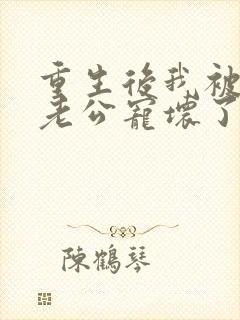 重生後我被
老公寵壞了
陳鶴琴